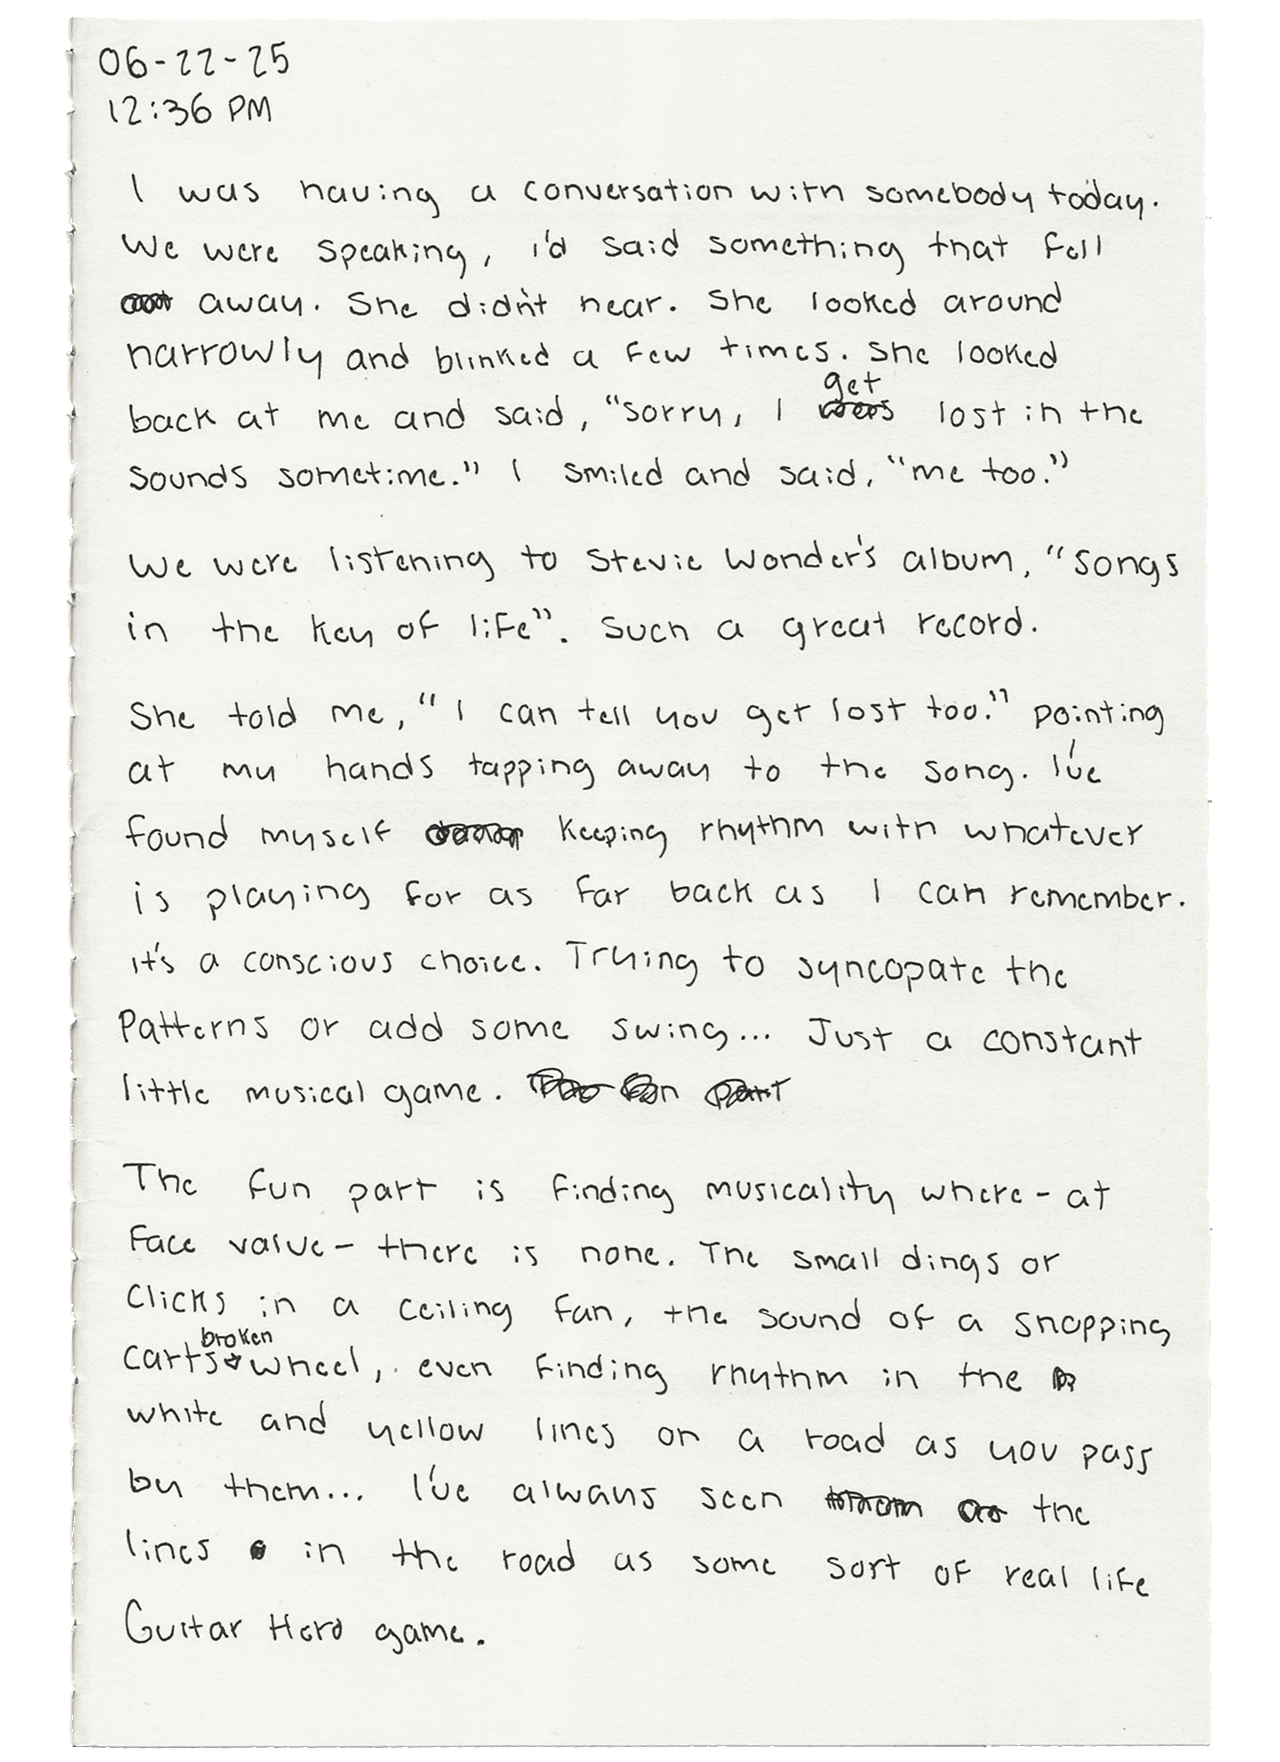 06-22-25
12:36 PM
I was having a conversation with somebody today.
We were speaking, i'd said something that fell
away. She didn't hear. She looked around
narrowly and blinked a few times. She looked
get
back at me and said, "sorry, I was lost in the
sounds sometime." I smiled and said, "me too."
We were listening to Stevie Wonder's album, "Songs
in the key of life". Such a great record.
She told me, "I can tell you get lost too." pointing
at my hands tapping away to the song. I've
found myself keeping rhythm with whatever
is playing for as far back as I can remember.
it's a conscious choice. Trying to syncopate the
Patterns or add some swing... Just a constant
little musical game. The fun part
The fun part is finding musicality where - at
face value - there is none. The small dings or
clicks in a ceiling fan, the sound of a shopping
broken
carts wheel, even finding rhythm in the
white and yellow lines on a road as you pass
by them... I've always seen the
lines in the road as some sort of real life
Guitar Hero game.